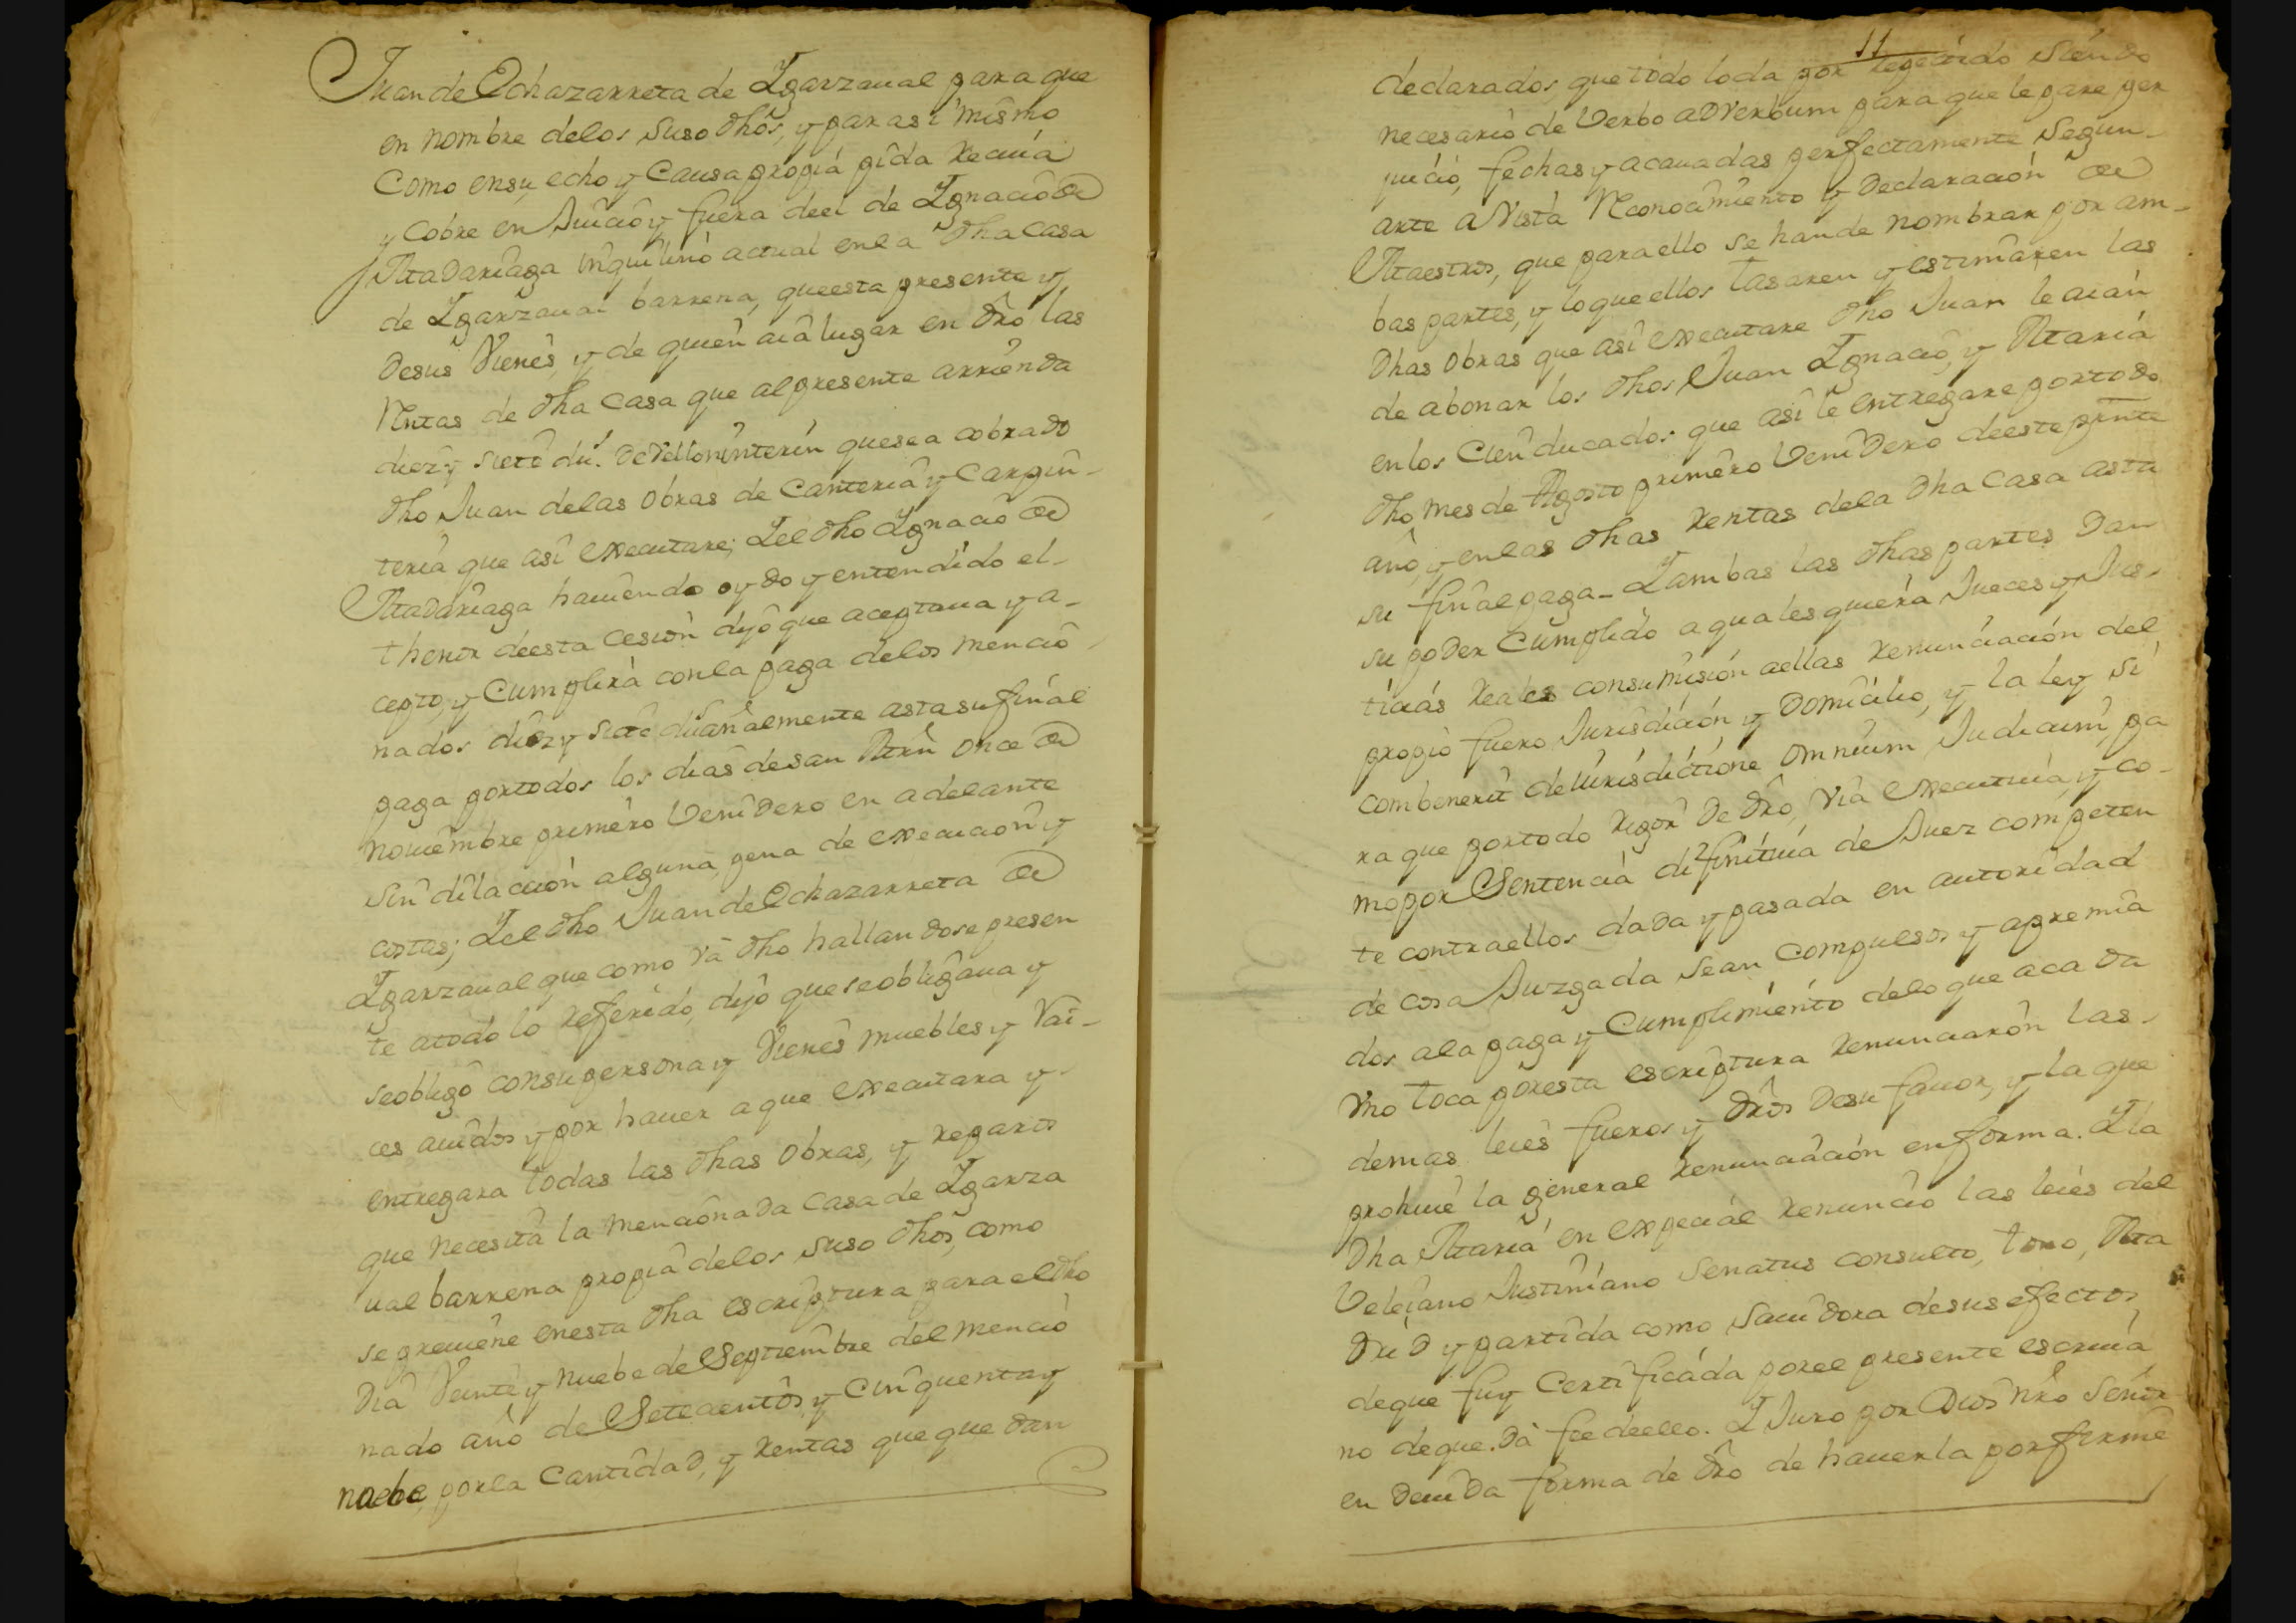 Juan de Echazarreta de Ygarzaual para que
en nombre delos suso dhos, y para si mismo
como ensu echo y Causa propia pida Reciua
y Cobre en Juicio y fuera deel de Ygnacio de
Madariaga inquilino actual enla dha Casa
de Ygarzaual barrena, queesta presente y
desus Vienes, y de quien aia lugar en dro las
Rentas de dha Casa que alpresente arrienda
diez y siete du.s de Vellon interin quesea cobrado
dho Juan delas obras de Canteria y Carpin-
teria que asi executare; Yel dho Ygnacio de
Madariaga hauiendo oydo y entendido el-
thenor deesta cesion dijo que aceptaua y a-
cepto, y Cumplira conla paga delos mencio
nados diez y siete du.s añalmente asta su final
paga portodos los dias desan Mrn once de
nouiembre primero Venidero en adelante
sin dilacion alguna, pena de execucion y
costas; Yel dho Juan de Echazarreta de
Ygarzaual que como va dho hallandose presen
te atodo lo referido, dijo que seobligaua y
seobligo consupersona y Vienes muebles y Rai-
ces auidos y por hauer aque executara y-
entregara todas las dhas obras, y reparos
que necesita la mencionada Casa de Ygarza
ual barrena propia delos suso dhos, como
se preuiene enesta dha escriptura para el dho
dia Veinte y nuebe de Septiembre del mencio
nado año de Setecientos y Cinquenta y
nuebe, porla Cantidad, y Rentas que que dan
11
declarados, que todo loda por repetido siendo
necesario de Verbo adverbum para que le pare per
juicio, fechas y acauadas perfectamente segun-
arte a Vista Reconocimiento y declaracion de
Maestros, que paraello se hande nombrar por am-
bas partes, y loqueellos tasaren y estimaren las
dhas obras que asi executare dho Juan le aian
de abonar los dhos Juan Ygnacio, y Maria
enlos Cien ducados que asi le entregare portodo
dho mes de Agosto primero Venidero deeste pnte
año, y enlas dhas Rentas dela dha Casa asta
su final paga- Yambas las dhas partes dan
su poder Cumplido aqualesquiera Jueces y Jus-
ticias Reales consumision aellas Renunciacion del
propio fuero Jurisdicion y Domicilio, y la ley si
combenerit de Iurisdictione omnium Judicum, pa
ra que portodo Rigor de dro, Via executiua, y co-
mo por Sentencia difinitiua de Juez competen
te contraellos dada y pasada en autoridad
de cosa Juzgada sean Compulsos y apremia
dos ala paga y Cumplimiento delo que acada
vno toca poresta escriptura Renunciaron las-
demas leies fueros y dros desu fauor, y la que
prohiue la general Renunciacion enforma. Yla
dha Maria en expecial Renuncio las leies del
Veleiano Justiniano Senatus consulto, toro, Ma
drid y partida como sauidora desus efectos
deque fuy Certificada porel presente escriua
no deque da fee deello. Y Juro por Dios nro Señor
en deuida forma de dro de hauerla porfirme